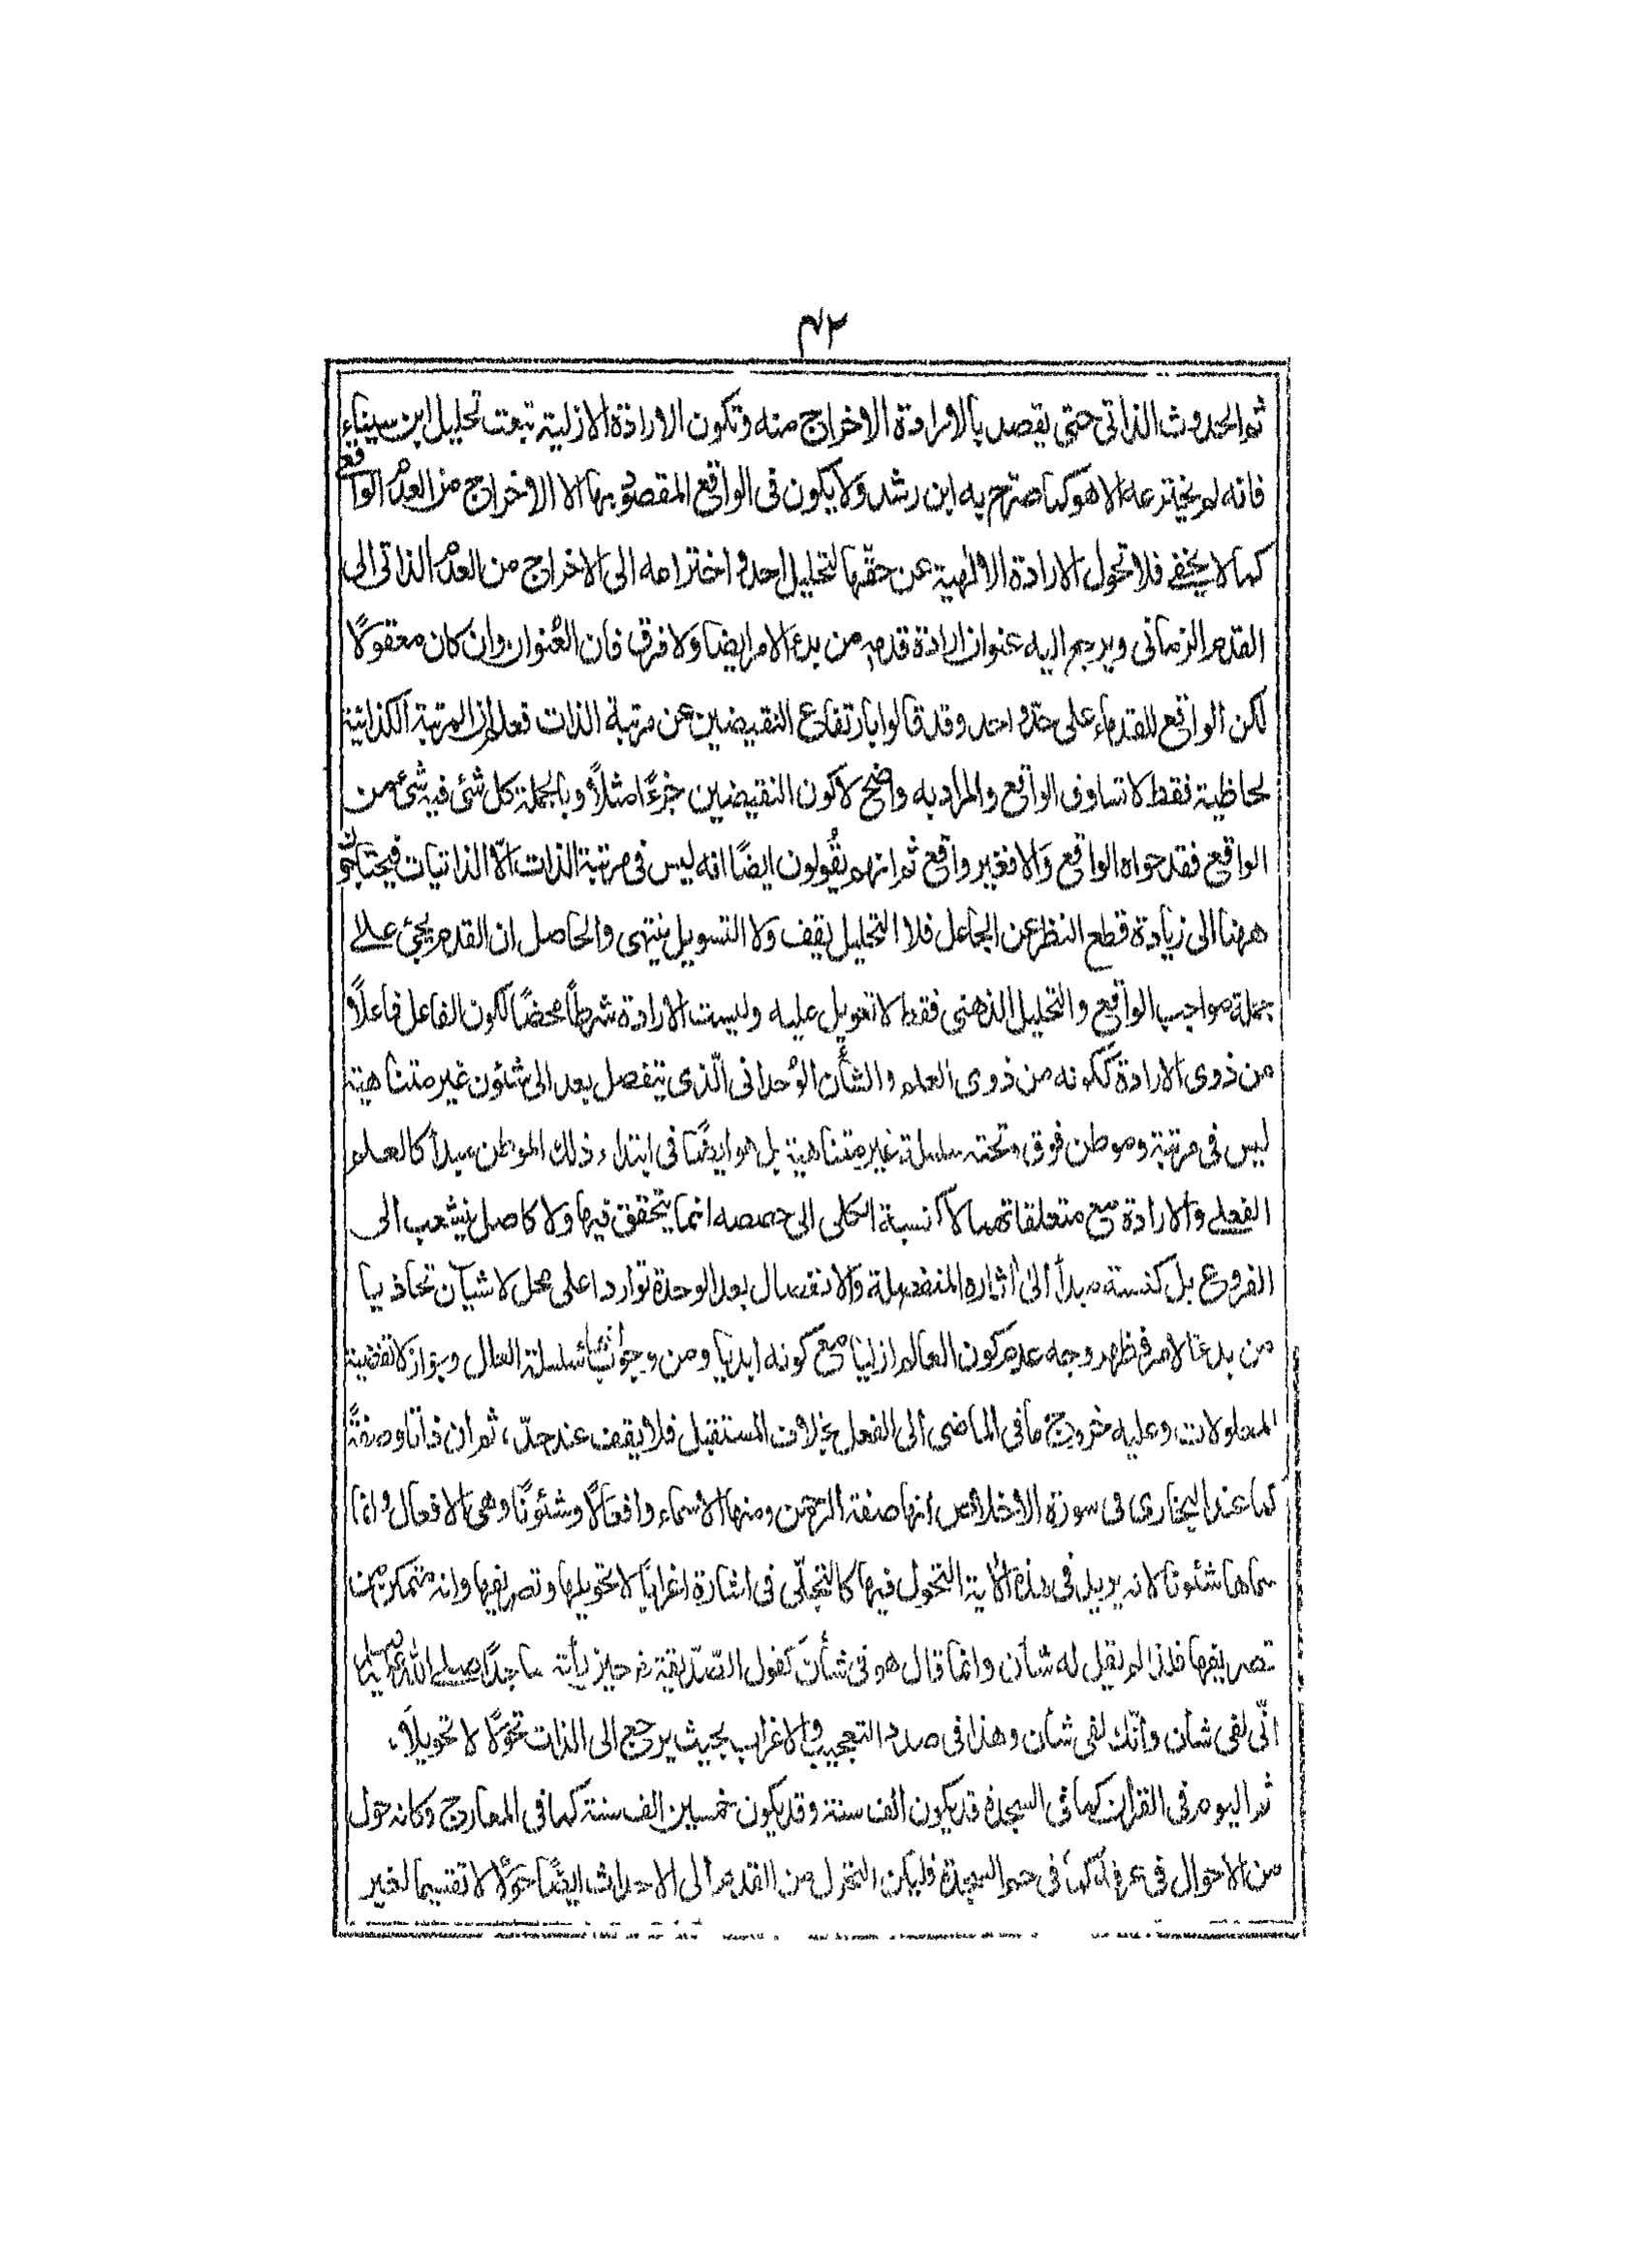 ٤٢
ثم الحدوث الذاتى حتى يقصد بالارادة الاخراج منه وتكون الارادة الازلية تبعت تحليل ابن سيناء
فانه لم يخترعه الا هو كما صرح به ابن رشد ولا يكون فى الواقع المقصود بها الا الاخراج من العدم الواقعى
كما لا يخفى فلا تحول الارادة الالٰهية عن حقها لتحليل احد واختراعه الى الاخراج من العدم الذاتى الى
القدم الزمانى ويرجع اليه عنوان ارادة قدمه من بدء الامر ايضا ولا فرق فان العنوان وان كان معقولًا
لكن الواقع للقدماء على حد واحد وقد قالوا بارتفاع النقيضين عن مرتبة الذات فعلم ان المرتبة الكذائية
لحاظية فقط لا تساوق الواقع والمراد به واضح لا كون النقيضين جزءًا مثلًا وبالجملة كل شئ فيه شئ من
الواقع فقد حواه الواقع والا فغير واقع ثم انهم يقولون ايضًا انه ليس فى مرتبة الذات الّا الذاتيات فيحتاجون
ههنا الى زيادة قطع النظر عن الجاعل فلا التحليل يقف ولا التسويل ينتهى والحاصل ان القدم يجئ على
جملة مواجب الواقع والتحليل الذهنى فقط لا تعويل عليه وليست الارادة شرطًا محضًا لكون الفاعل فاعلًا
من ذوى الارادة ككونه من ذوى العلم والشأن الوحدانى الّذى يتفصل بعد الى شئون غير متناهية
ليس فى مرتبة وموطن فوق وتحته سلسلة غير متناهية بل هو ايضًا فى ابتداء ذلك الموطن مبدأ كالعلم
الفعلى والارادة مع متعلقاتهما لا كنسبة الكلى الى حصصه انما يتحقق فيها ولا كاصل ينشعب الى
الفروع بل كنسبة مبدأ الى آثاره المنفصلة والانفصال بعد الوحدة تواردا على محل لا شيآن تحاذيا
من بدء الامر فظهر وجه عدم كون العالم ازليا مع كونه ابديا ومن وجوب تناهى سلسلة العلل وجواز لا تقفية
المعلولات وعليه خروج ما فى الماضى الى الفعل بخلاف المستقبل فلا يقف عند حدّ، ثم ان ذاتا وصفةً
كما عند البخارى فى سورة الاخلاص انها صفة الرحمٰن ومنها الاسماء وافعالًا وشئونًا وهى الافعال وانما
سماها شئونا لانه يريد فى هذه الآية التحول فيها كالتجلّى فى اشارة اغرابًا لا تحويلها وتصريفها وانه متمكن من
تصريفها فلذا لم يقل له شأن وانما قال هو فى شأن كقول الصّدّيقة حين رأته ساجدًا صلى الله عليه وسلم
انّى لفى شأن وانّك لفى شأن وهذا فى صدد التعجيب والاغراب بحيث يرجع الى الذات تحولًا لا تحويلًا،
ثم اليوم فى القرآن كما فى السجدة قد يكون الف سنة وقد يكون خمسين الف سنة كما فى المعارج وكانه حول
من الاحوال فى عرفه كما فى حم السجدة فليكن التحول من القدم الى الاحداث ايضًا حولًا لا تقسيما لغير